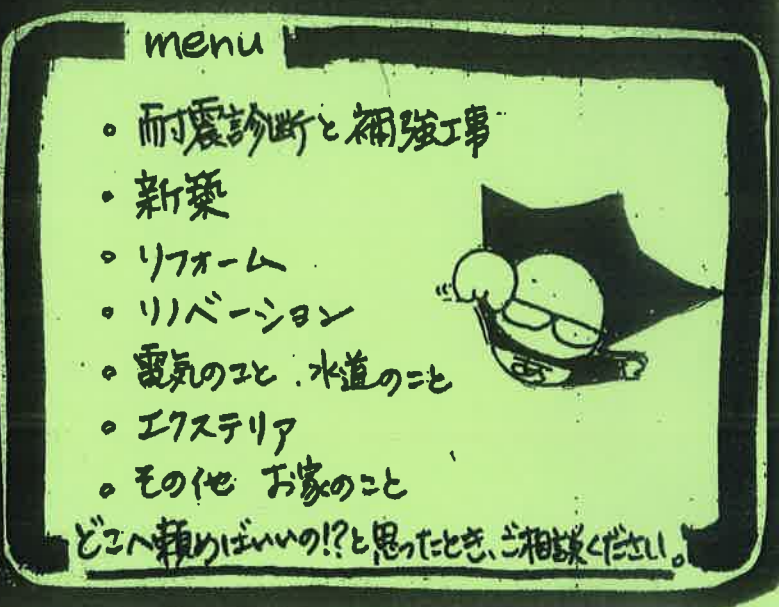 menu
。耐震診断と補強工事
。新築
。リフォーム
。リノベーション
。電気のこと.水道のこと
。エクステリア
。その他 お家のこと
あ
どこへ頼めばいいの!?と思ったとき、ご相談ください。